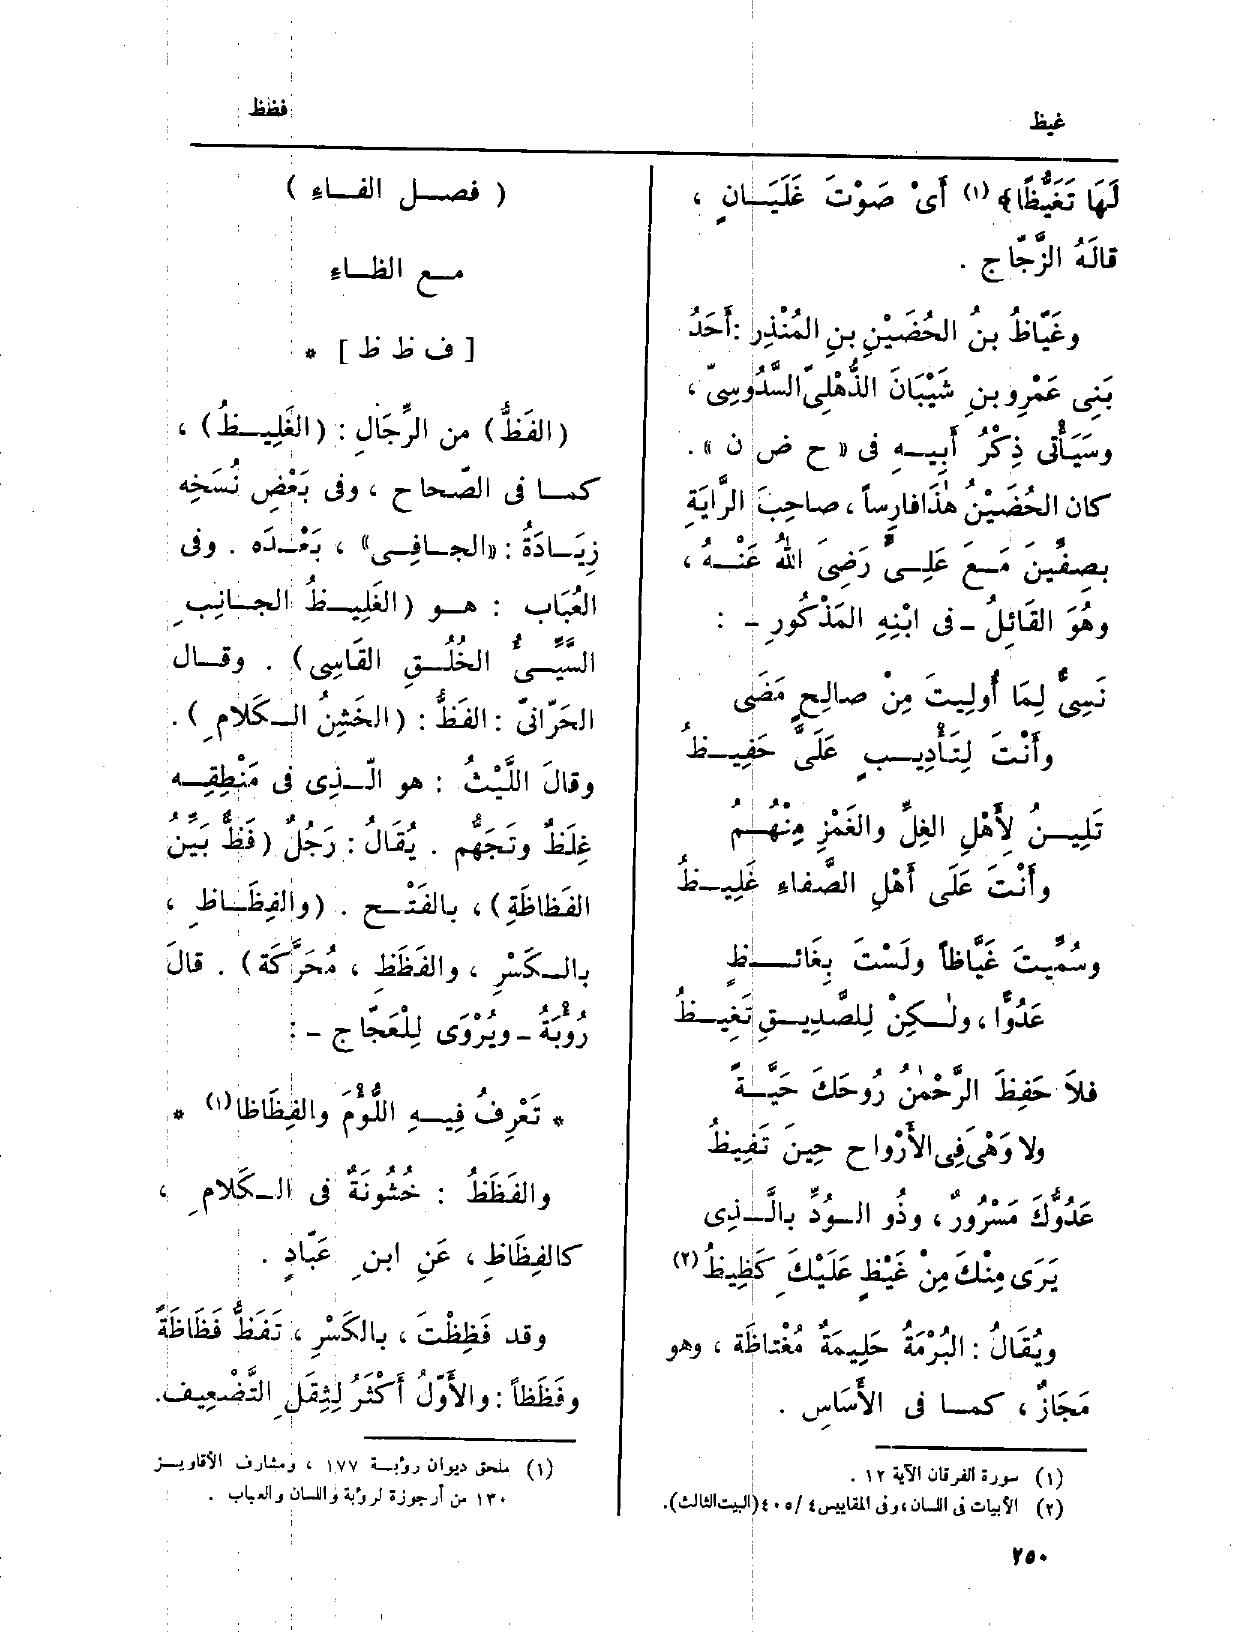 غيظ
فظظ
لَهَا تَغَيُّظًا﴾ (١) أَىْ صَوْتَ غَلَيَـانٍ ،
قالَهُ الزَّجّاج .
وغَيّاظُ بنُ الحُضَيْنِ بنِ المُنْذِرِ : أَحَدُ
بَنِى عَمْرِو بنِ شَيْبَانَ الذُّهْلِىّ السَّدُوسِىّ ،
وسَيَأْتِى ذِكْرُ أَبِيـهِ فى « ح ض ن » .
كان الحُضَيْنُ هٰذَا فارِساً ، صاحِبَ الرَّايَةِ
بصِفِّينَ مَـعَ عَلِـىٍّ رَضِىَ اللهُ عَنْـهُ ،
وهُوَ القَائِلُ ـ فى ابْنِهِ المَذْكُورِ ـ :
نَسِىٌّ لِمَا أُولِيتَ مِنْ صالِحٍ مَضَى
وأَنْتَ لِتَأْدِيـبٍ عَلَىَّ حَفِيـظُ
تَلِيـنُ لِأَهْلِ الغِلِّ والغَمْزِ مِنْهُـمُ
وأَنْتَ عَلَى أَهْلِ الصَّفاءِ غَلِيـظُ
وسُمِّيتَ غَيَّاظاً ولَسْتَ بِغَائـظٍ
عَدُوًّا ، ولٰـكِنْ لِلصَّدِيـقِ تَغِيـظُ
فلاَ حَفِظَ الرَّحْمٰنُ رُوحَكَ حَيَّـةً
ولا وَهْىَ فِى الأَرْواحِ حِينَ تَفِيظُ
عَدُوُّكَ مَسْرُورٌ ، وذُو الـوُدِّ بِالَّـذِى
يَرَى مِنْكَ مِنْ غَيْظٍ عَلَيْكَ كَظِيظُ (٢)
ويُقَالُ : البُرْمَةُ حَلِيمَةٌ مُغْتاظَة ، وهو
مَجَازٌ ، كمـا فى الأَسَاسِ .
(١) سورة الفرقان الآية ١٢ .
(٢) الأبيات فى اللسان ، وفى المقاييس ٤ /٤٠٥ (البيت الثالث).
( فصـل الفـاء )
مـع الظـاء
[ ف ظ ظ ] *
(الفَظُّ) من الرِّجَالِ : (الغَلِيـظُ) ،
كمـا فى الصّحاح ، وفى بَعْضِ نُسَخِه
زِيَـادَةُ : «الجـافِـى» ، بَعْـدَه . وفى
العُبَاب : هـو (الغَلِيـظُ الجـانِبِ
السَّيِّـئُ الخُلُـقِ القَاسِى) . وقـال
الحَرّانىّ : الفَظُّ : (الخَشِنُ الـكَلامِ ) .
وقالَ اللَّيْثُ : هو الّـذِى فى مَنْطِقِـه
غِلَظٌ وتَجَهُّم . يُقَالُ : رَجُلٌ (فَظٌّ بَيِّنُ
الفَظاظَةِ) ، بالفَتْـح . (والفِظَـاظِ ،
بالـكَسْرِ ، والفَظَظِ ، مُحَرَّكَة) . قالَ
رُؤْبَةُ ـ ويُرْوَى لِلْعَجّاج ـ :
* تَعْرِفُ فِيـهِ اللُّؤْمَ والفِظَاظا (١) *
والفَظَظُ : خُشُونَةٌ فى الـكَلامِ ،
كالفِظَاظِ ، عَنِ ابنِ عَبّادٍ .
وقد فَظِظْتَ ، بالكَسْرِ ، تَفَظُّ فَظَاظَةً
وفَظَظاً : والأَوّلُ أَكْثَرُ لِثِقَلِ التَّضْعِيف.
(١) ملحق ديوان رؤبـة ١٧٧ ، ومشارف الأقاويـز
١٣٠ من أرجوزة لرؤبة واللسان والعباب .
٢٥٠